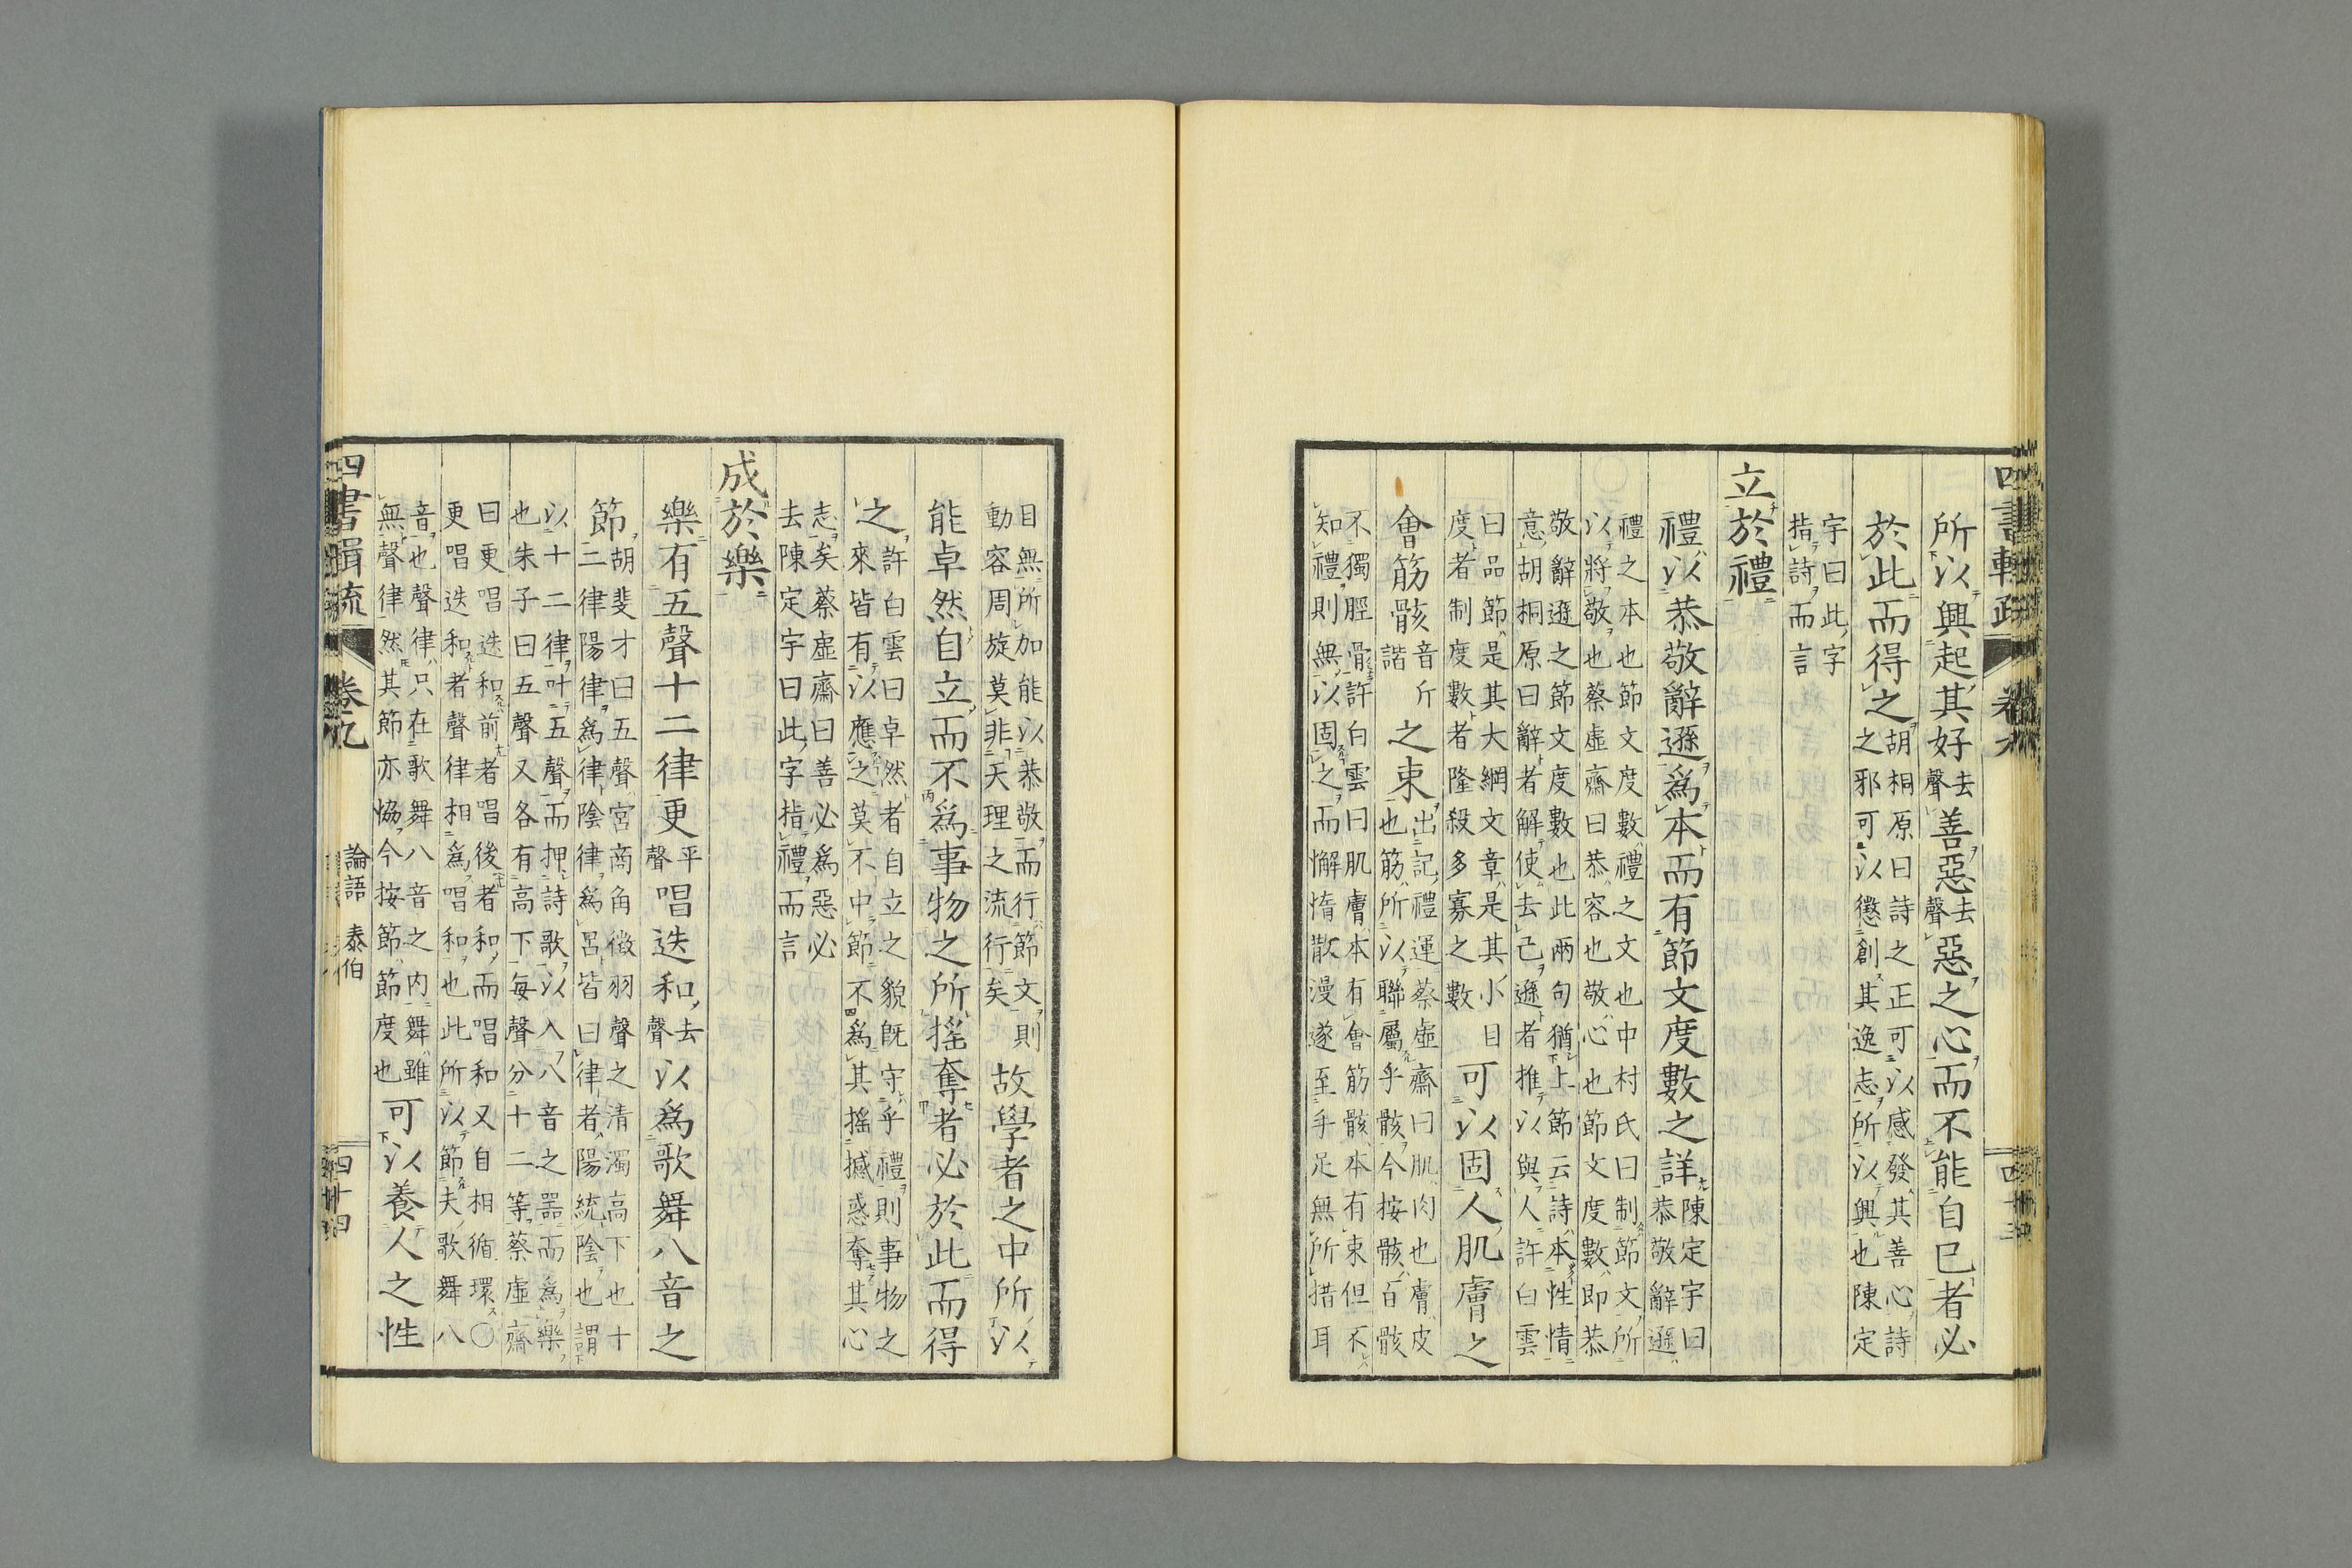 所以興起其好去聲善惡去聲惡之心而不能自已者必
於此而得之胡桐原曰詩之正可以感發其善心詩
之邪可以懲創其逸志所以興也陳定
宇曰此字
指詩而言
立於禮
禮以恭敬辭遜爲本而有節文度數之詳陳定宇曰
恭敬辭遜
禮之本也節文度數禮之文也中村氏曰制節文所
以將敬也蔡虛齋曰恭容也敬心也節文度數即恭
敬辭遜之節文度數也此兩句猶上節云詩本性情
意胡桐原曰辭者解使去己遜者推以與人許白雲
曰品節是其大綱文章是其小目
度者制度數者隆殺多寡之數
可以固人肌膚之
會筋骸音斤諧之束出記禮運蔡虛齋曰肌肉也膚皮
也筋所以聯屬乎骸今按骸百骸
不獨脛骨許白雲曰肌膚本有會筋骸本有束但不
知禮則無以固之而懈惰散漫遂至手足無所措耳
目無所加能以恭敬而行節文則
動容周旋莫非天理之流行矣
故學者之中所以
能卓然自立而不爲事物之所搖奪者必於此而得
之許白雲曰卓然者自立之貌既守乎禮則事物之
來皆有以應之莫不中節不爲其搖撼惑奪其心
志矣蔡虛齋曰善必爲惡必
去陳定宇曰此字指禮而言
成於樂
樂有五聲十二律更平聲唱迭和去聲以爲歌舞八音之
節胡斐才曰五聲宮商角徵羽聲之清濁高下也十
二律陽律爲律陰律爲呂皆曰律者陽統陰也謂
以十二律叶五聲而押詩歌以入八音之器而爲樂
也朱子曰五聲又各有高下每聲分十二等蔡虛齋
曰更唱迭和前者唱後者和而唱和又自相循環〇
更唱迭和者聲律相爲唱和也此所以節夫歌舞八
音也聲律只在歌舞八音之内舞雖
無聲律然其節亦恊今按節節度也
可以養人之性
四書輯疏 卷九 論語 泰伯 四十四